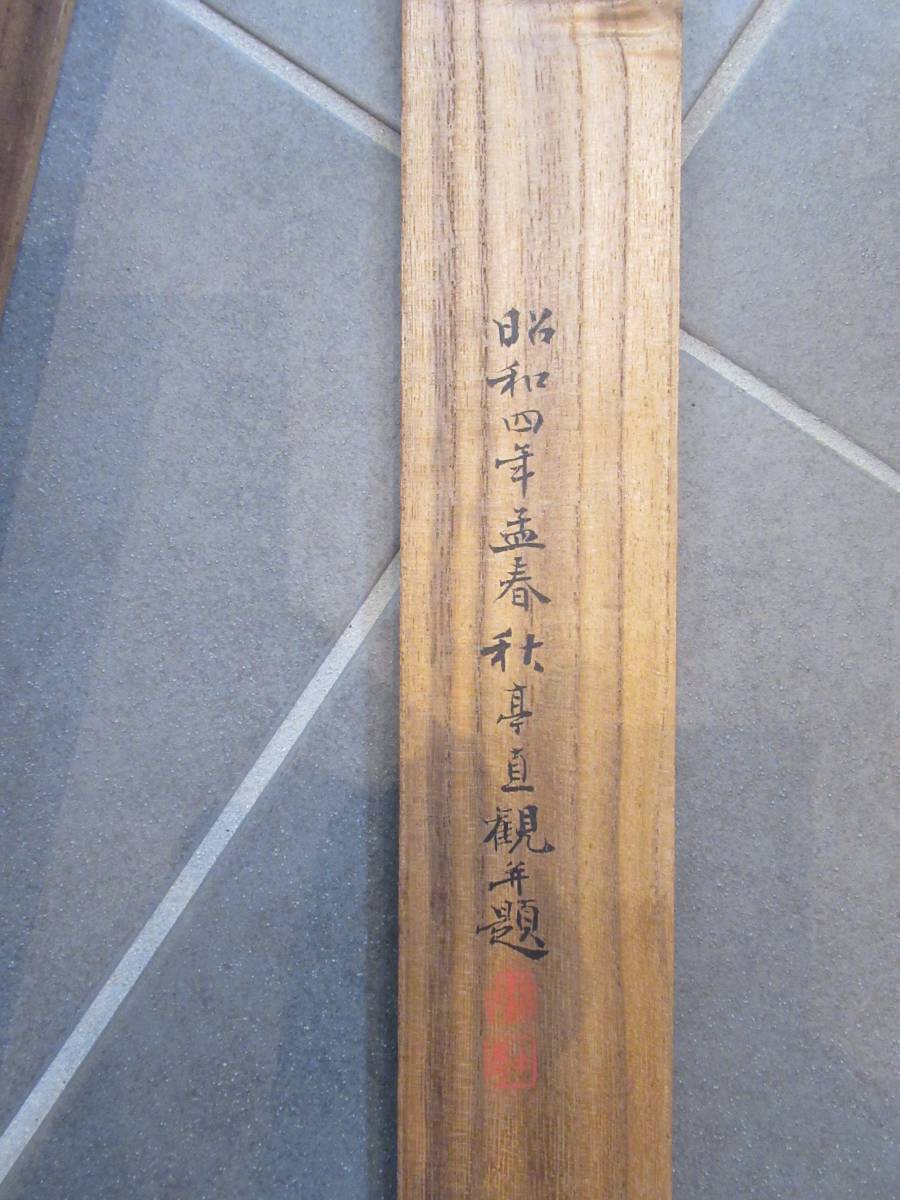 昭和四年孟春秋亭直觀并題